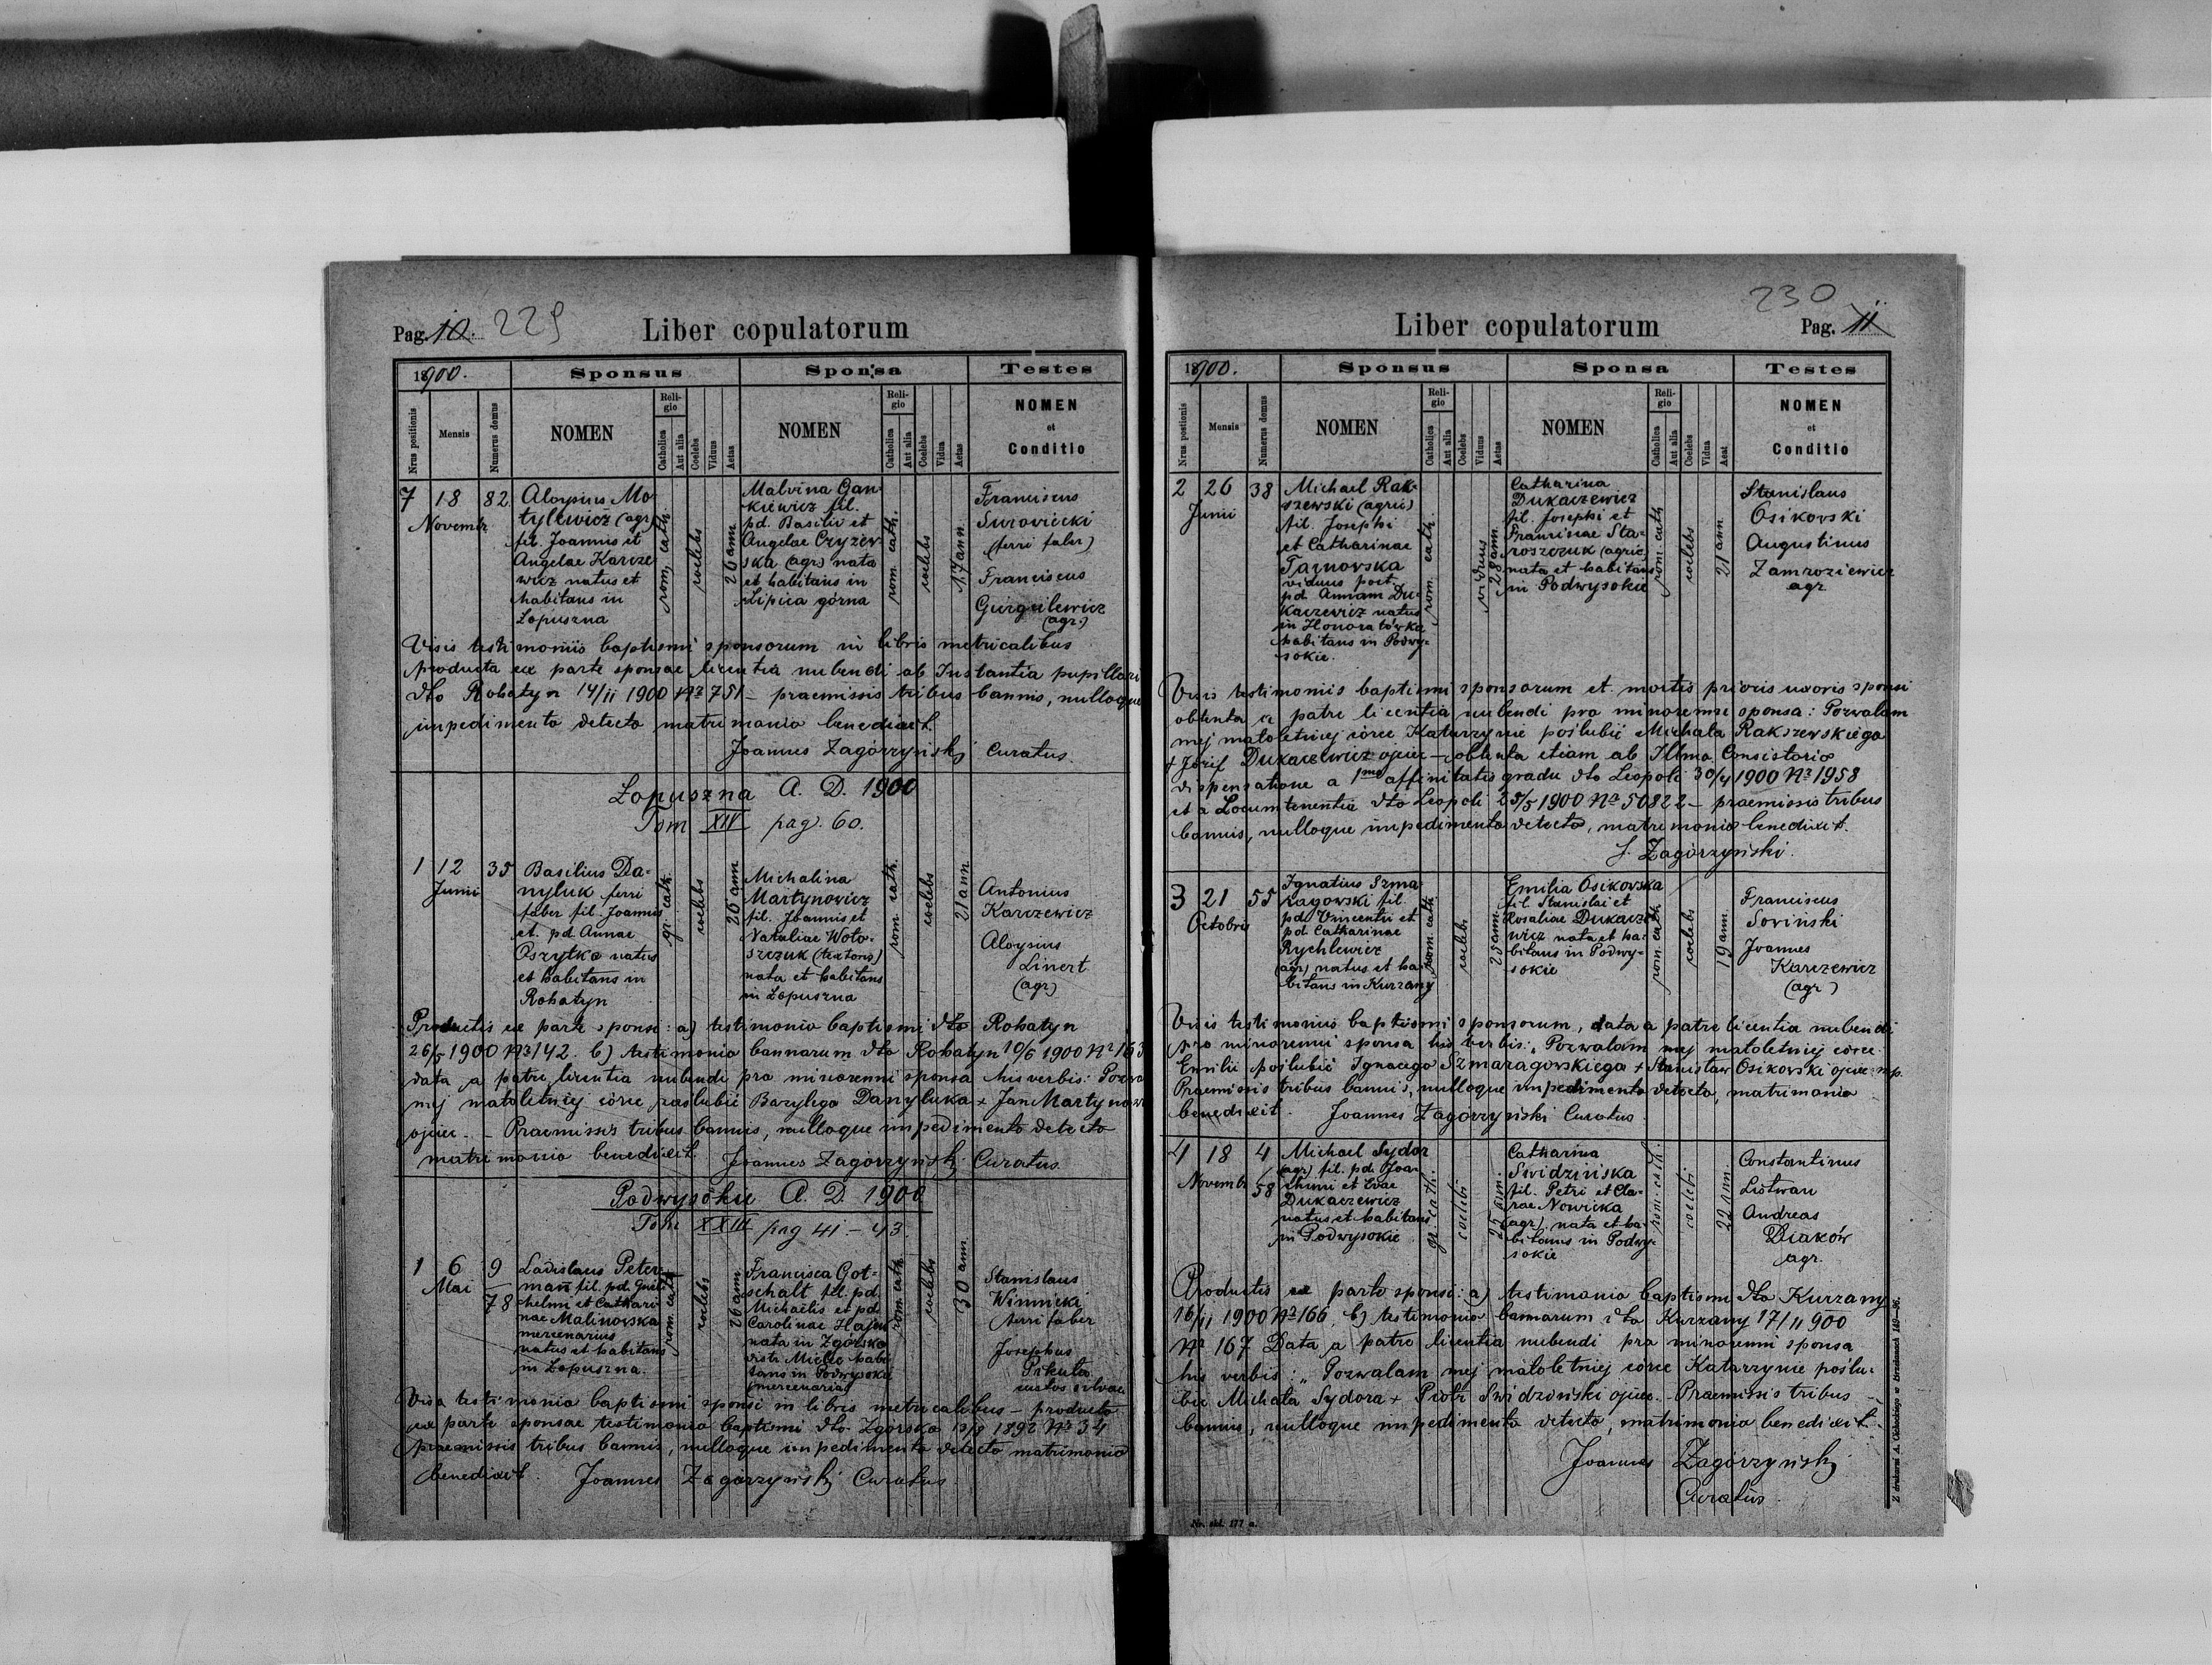 Pag. 10. 229
Liber copulatorum
1900.
Sponsus
Sponsa
Testes
Nrus positionis
Mensis
Numerus domus
NOMEN
Religio
Catholica
Aut alia
Coelebs
Viduus
Aetas
NOMEN
Religio
Catholica
Aut alia
Coelebs
Vidua
Aetas
NOMEN
et
Conditio
7
18
Novembr.
82
Aloysius Mo-
tylewicz (agr)
fil. Joannis et
Angelae Karcze
wicz natus et
habitans in
Łopuszna
rom. cath.
coelebs
26 ann
Malvina Gan-
kiewicz fil.
pd. Basilii et
Angelae Czyżew
ska (agr) nata
et habitans in
Lipica górna
rom. cath.
coelebs
17 ann
Franciscus
Surowiecki
(ferri faber)
Franciscus
Gurgulewicz
(agr.)
Visis testimoniis baptismi sponsorum in libris metricalibus
producta ex parte sponsae licentia nubendi ab Instantia pupillari
dto Rohatyn 14/11 1900 No 751 - praemissis tribus bannis, nulloque
impedimento detecto matrimonio benedixit.
Joannes Zagórzyński Curatus.
Łopuszna A. D. 1900
Tom XIV pag. 60.
1
12
Junii
35
Basilius Da-
nyluk ferri
faber fil. Joannis
et pd. Annae
Oszytko natus
et habitans in
Rohatyn
gr. cath.
coelebs
26 ann
Michalina
Martynowicz
fil. Joannis et
Nataliae Woło-
szczuk (textoris)
nata et habitans
in Łopuszna
rom. cath.
coelebs
21 ann.
Antonius
Karczewicz
Aloysius
Linert
(agr)
Productis ex parte sponsi: a) testimonio baptismi dto Rohatyn
26/5 1900 No 142. b) testimonio bannorum dto Rohatyn 10/6 1900 No 163
data a patre licentia nubendi pro minorenni sponsa his verbis: Pozwa
mej małoletniej córce poślubić Bazylego Danyluka + Jan Martynow
ojciec. - Praemissis tribus bannis, nulloque impedimento detecto
matrimonio benedixit. Joannes Zagórzyński Curatus.
Podwysokie A. D. 1900
Tom XXIII pag 41 - 43.
1
6
Mai
9
78
Ladislaus Peter-
mann fil. pd. Guil
helmi et Cathari
nae Malinowska
mercenarius
natus et habitans
in Łopuszna.
rom. cath
coelebs
26 ann.
Francisca Got-
schalt fil. pd.
Michaelis et pd.
Carolinae Hajew
nata in Zgórsko
distr. Mielec habi
tans in Podwysokie
(mercenaria)
rom. cath.
coelebs
30 ann.
Stanislaus
Winnicki
ferri faber
Josephus
Pikuła
custos silvae
Viso testimonio baptismi sponsi in libris metricalibus - producto
ex parte sponsae testimonio baptismi dto Zgórsko 13/9 1892 No 34
praemissis tribus bannis, nulloque impedimento detecto matrimonio
benedixit. Joannes Zagórzyński Curatus.
230
Liber copulatorum
Pag. 11
1900.
Sponsus
Sponsa
Testes
Nrus positionis
Mensis
Numerus domus
NOMEN
Religio
Catholica
Aut alia
Coelebs
Viduus
Aetas
NOMEN
Religio
Catholica
Aut alia
Coelebs
Vidua
Aeat
NOMEN
et
Conditio
2
26
Junii
38
Michael Rak-
szewski (agric)
fil. Josephi
et Catharinae
Tarnowska
viduus post.
pd. Annam Du-
kaczewicz natus
in Honoratówka
habitans in Podwy-
sokie.
rom. cath.
viduus
28 ann.
Catharina
Dukaczewicz
fil. Josephi et
Franciscae Sta-
roszczuk (agric)
nata et habitans
in Podwysokie
rom. cath
coelebs
21 ann.
Stanislaus
Osikovski
Augustinus
Zamroziewicz
agr
Visis testimoniis baptismi sponsorum et mortis prioris uxoris sponsi
obtenta a patre licentia nubendi pro minorenni sponsa: Pozwalam
mej małoletniej córce Katarzynie poślubić Michała Rakszewskiego
+ Józef Dukaczewicz ojciec - obtenta etiam ab Illmo Consistorio
dispensatione a 1mo affinitatis gradu dto Leopoli 30/4 1900 No 1958
et a Locumtenentia dto Leopoli 25/5 1900 No 50822 - praemissis tribus
bannis, nulloque impedimento detecto, matrimonio benedixit.
J. Zagórzyński.
3
21
Octobris
55
Ignatius Szma
ragowski fil
pd. Vincentii et
pd. Catharinae
Rychlewicz
(agr) natus et ha-
bitans in Kurzany
rom. cath.
coelebs
25 ann.
Emilia Osikovska
fil. Stanislai et
Rosaliae Dukacze
wicz nata et ha-
bitans in Podwy-
sokie
rom. cath.
coelebs
19 ann.
Franciscus
Soviński
Joannes
Karczewicz
(agr)
Visis testimoniis baptismi sponsorum, data a patre licentia nubendi
pro minorenni sponsa his verbis: „Pozwalam mej małoletniej córce
Emilii poślubić Ignacego Szmaragowskiego + Stanisław Osikovski ojciec mp.
Praemissis tribus bannis, nulloque impedimento detecto, matrimonio
benedixit. Joannes Zagórzyński Curatus.
4
18
Novemb.
4
58
Michael Sydor
(agr) fil. pd. Joa-
chimi et Evae
Dukaczewicz
natus et habitans
in Podwysokie
gr. cath.
coelebs
25 ann.
Catharina
Swidzińska
fil. Petri et Cla-
rae Nowicka
(agr) nata et ha-
bitans in Podwy-
sokie
rom. cath.
coelebs
22 ann.
Constantinus
Listwan
Andreas
Diaków
agr.
Productis ex parte sponsi: a) testimonio baptismi dto Kurzany
16/11 1900 No 166, b) testimonio bannorum dto Kurzany 17/11 900
No 167 Data a patre licentia nubendi pro minorenni sponsa
his verbis: „Pozwalam mej małoletniej córce Katarzynie poślu-
bić Michała Sydora + Piotr Swidziński ojciec. - Praemissis tribus
bannis, nulloque impedimento detecto, matrimonio benedixit.
Joannes Zagórzyński
Curatus.
Nr. skl. 177 a.